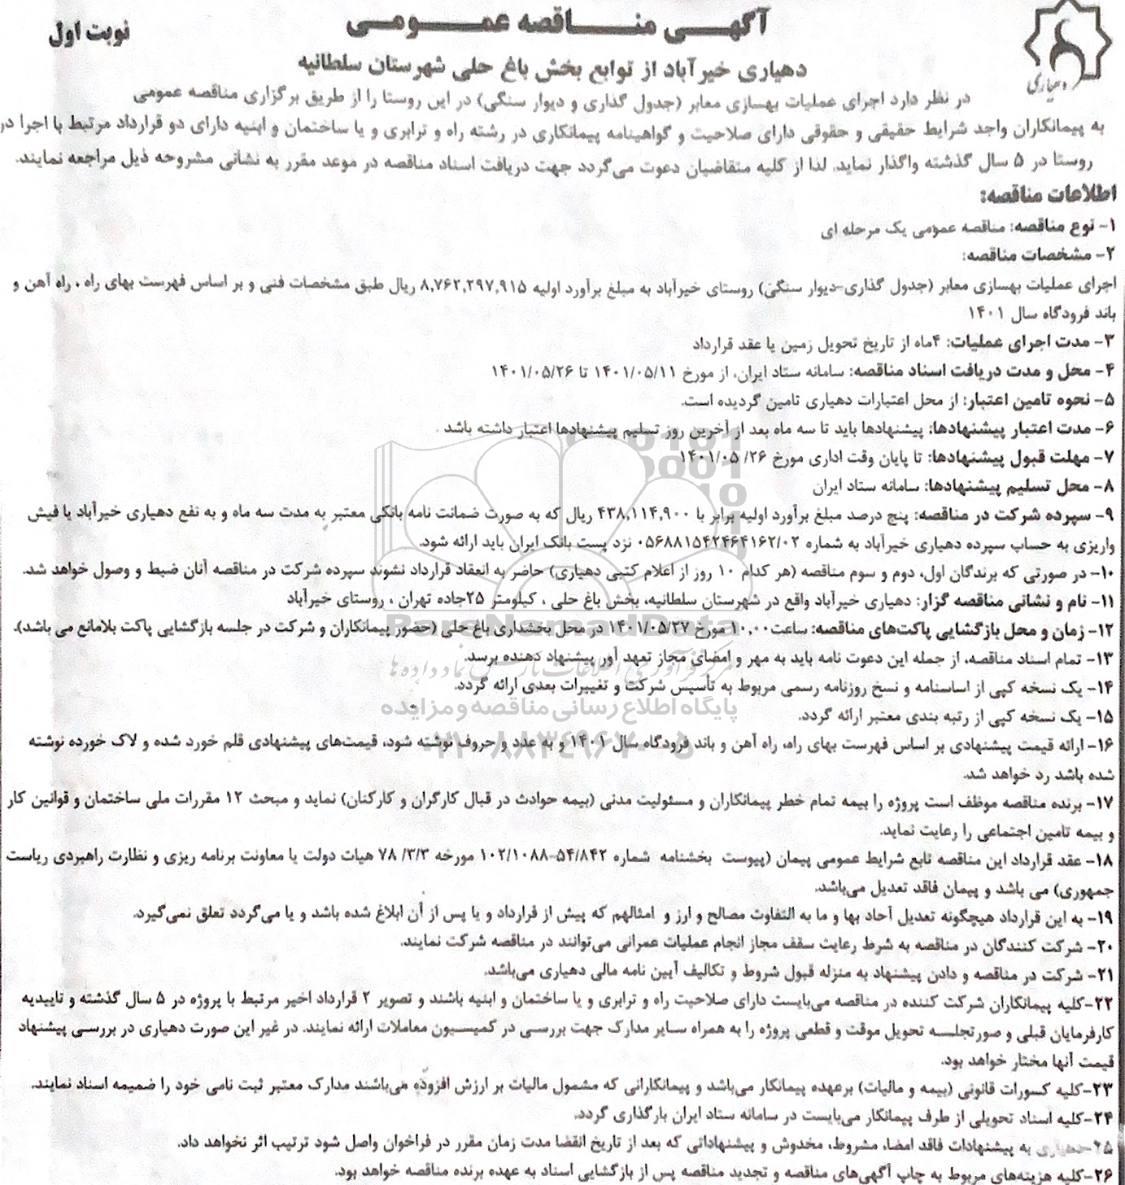 آگهـی مناقصه عمـومی
نوبت اول
دهیاری
دهیاری خیرآباد از توابع بخش باغ حلی شهرستان سلطانیه
در نظر دارد اجرای عملیات بهسازی معابر (جدول گذاری و دیوار سنگی) در این روستا را از طریق برگزاری مناقصه عمومی
به پیمانکاران واجد شرایط حقیقی و حقوقی دارای صلاحیت و گواهینامه پیمانکاری در رشته راه و ترابری و یا ساختمان و ابنیه دارای دو قرارداد مرتبط با اجرا در
روستا در ۵ سال گذشته واگذار نماید. لذا از کلیه متقاضیان دعوت می‌گردد جهت دریافت اسناد مناقصه در موعد مقرر به نشانی مشروحه ذیل مراجعه نمایند.
اطلاعات مناقصه:
۱- نوع مناقصه: مناقصه عمومی یک مرحله ای
۲- مشخصات مناقصه:
اجرای عملیات بهسازی معابر (جدول گذاری-دیوار سنگی) روستای خیرآباد به مبلغ برآورد اولیه ۸,۷۶۲,۲۹۷,۹۱۵ ریال طبق مشخصات فنی و بر اساس فهرست بهای راه ، راه آهن و
باند فرودگاه سال ۱۴۰۱
۳- مدت اجرای عملیات: ۴ماه از تاریخ تحویل زمین یا عقد قرارداد
۴- محل و مدت دریافت اسناد مناقصه: سامانه ستاد ایران، از مورخ ۱۴۰۱/۰۵/۱۱ تا ۱۴۰۱/۰۵/۲۶
۵- نحوه تامین اعتبار: از محل اعتبارات دهیاری تامین گردیده است.
۶- مدت اعتبار پیشنهادها: پیشنهادها باید تا سه ماه بعد از آخرین روز تسلیم پیشنهادها اعتبار داشته باشد.
۷- مهلت قبول پیشنهادها: تا پایان وقت اداری مورخ ۲۶/ ۱۴۰۱/۰۵
۸- محل تسلیم پیشنهادها: سامانه ستاد ایران
۹- سپرده شرکت در مناقصه: پنج درصد مبلغ برآورد اولیه برابر با ۴۳۸,۱۱۴,۹۰۰ ریال که به صورت ضمانت نامه بانکی معتبر به مدت سه ماه و به نفع دهیاری خیرآباد یا فیش
واریزی به حساب سپرده دهیاری خیرآباد به شماره ۰۵۶۸۸۱۵۴۲۴۶۴۱۶۲/۰۲ نزد پست بانک ایران باید ارائه شود.
۱۰- در صورتی که برندگان اول، دوم و سوم مناقصه (هر کدام ۱۰ روز از اعلام کتبی دهیاری) حاضر به انعقاد قرارداد نشوند سپرده شرکت در مناقصه آنان ضبط و وصول خواهد شد.
۱۱- نام و نشانی مناقصه گزار: دهیاری خیرآباد واقع در شهرستان سلطانیه، بخش باغ حلی ، کیلومتر ۲۵جاده تهران ، روستای خیرآباد
۱۲- زمان و محل بازگشایی پاکت‌های مناقصه: ساعت ۱۰,۰۰ مورخ ۱۴۰۱/۰۵/۲۷ در محل بخشداری باغ حلی (حضور پیمانکاران و شرکت در جلسه بازگشایی پاکت بلامانع می باشد).
۱۳- تمام اسناد مناقصه، از جمله این دعوت نامه باید به مهر و امضای مجاز تعهد آور پیشنهاد دهنده برسد.
۱۴- یک نسخه کپی از اساسنامه و نسخ روزنامه رسمی مربوط به تأسیس شرکت و تغییرات بعدی ارائه گردد.
۱۵- یک نسخه کپی از رتبه بندی معتبر ارائه گردد.
۱۶- ارائه قیمت پیشنهادی بر اساس فهرست بهای راه، راه آهن و باند فرودگاه سال ۱۴۰۱ و به عدد و حروف نوشته شود، قیمت‌های پیشنهادی قلم خورد شده و لاک خورده نوشته
شده باشد رد خواهد شد.
۱۷- برنده مناقصه موظف است پروژه را بیمه تمام خطر پیمانکاران و مسئولیت مدنی (بیمه حوادث در قبال کارگران و کارکنان) نماید و مبحث ۱۲ مقررات ملی ساختمان و قوانین کار
و بیمه تامین اجتماعی را رعایت نماید.
۱۸- عقد قرارداد این مناقصه تابع شرایط عمومی پیمان (پیوست بخشنامه شماره ۵۴/۸۴۲-۱۰۲/۱۰۸۸ مورخه ۳/۳/ ۷۸ هیات دولت یا معاونت برنامه ریزی و نظارت راهبردی ریاست
جمهوری) می باشد و پیمان فاقد تعدیل می‌باشد.
۱۹- به این قرارداد هیچگونه تعدیل آحاد بها و ما به التفاوت مصالح و ارز و امثالهم که پیش از قرارداد و یا پس از آن ابلاغ شده باشد و یا می‌گردد تعلق نمی‌گیرد.
۲۰- شرکت کنندگان در مناقصه به شرط رعایت سقف مجاز انجام عملیات عمرانی می‌توانند در مناقصه شرکت نمایند.
۲۱- شرکت در مناقصه و دادن پیشنهاد به منزله قبول شروط و تکالیف آیین نامه مالی دهیاری می‌باشد.
۲۲-کلیه پیمانکاران شرکت کننده در مناقصه می‌بایست دارای صلاحیت راه و ترابری و یا ساختمان و ابنیه باشند و تصویر ۲ قرارداد اخیر مرتبط با پروژه در ۵ سال گذشته و تاییدیه
کارفرمایان قبلی و صورتجلسه تحویل موقت و قطعی پروژه را به همراه سایر مدارک جهت بررسی در کمیسیون معاملات ارائه نمایند. در غیر این صورت دهیاری در بررسی پیشنهاد
قیمت آنها مختار خواهد بود.
۲۳-کلیه کسورات قانونی (بیمه و مالیات) برعهده پیمانکار می‌باشد و پیمانکارانی که مشمول مالیات بر ارزش افزوده می‌باشند مدارک معتبر ثبت نامی خود را ضمیمه اسناد نمایند.
۲۴-کلیه اسناد تحویلی از طرف پیمانکار می‌بایست در سامانه ستاد ایران بارگذاری گردد.
۲۵-دهیاری به پیشنهادات فاقد امضا، مشروط، مخدوش و پیشنهاداتی که بعد از تاریخ انقضا مدت زمان مقرر در فراخوان واصل شود ترتیب اثر نخواهد داد.
۲۶-کلیه هزینه‌های مربوط به چاپ آگهی‌های مناقصه و تجدید مناقصه پس از بازگشایی اسناد به عهده برنده مناقصه خواهد بود.
ParsNamadData
پایگاه اطلاع رسانی مناقصه و مزایده